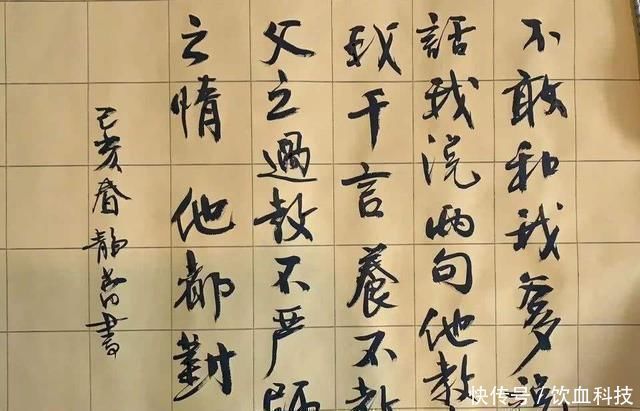 不敢和我爹
話我说兩句他教
我千言養不教
父之過教不严師
之情他都對
己亥春静书
快传号/饮血科技